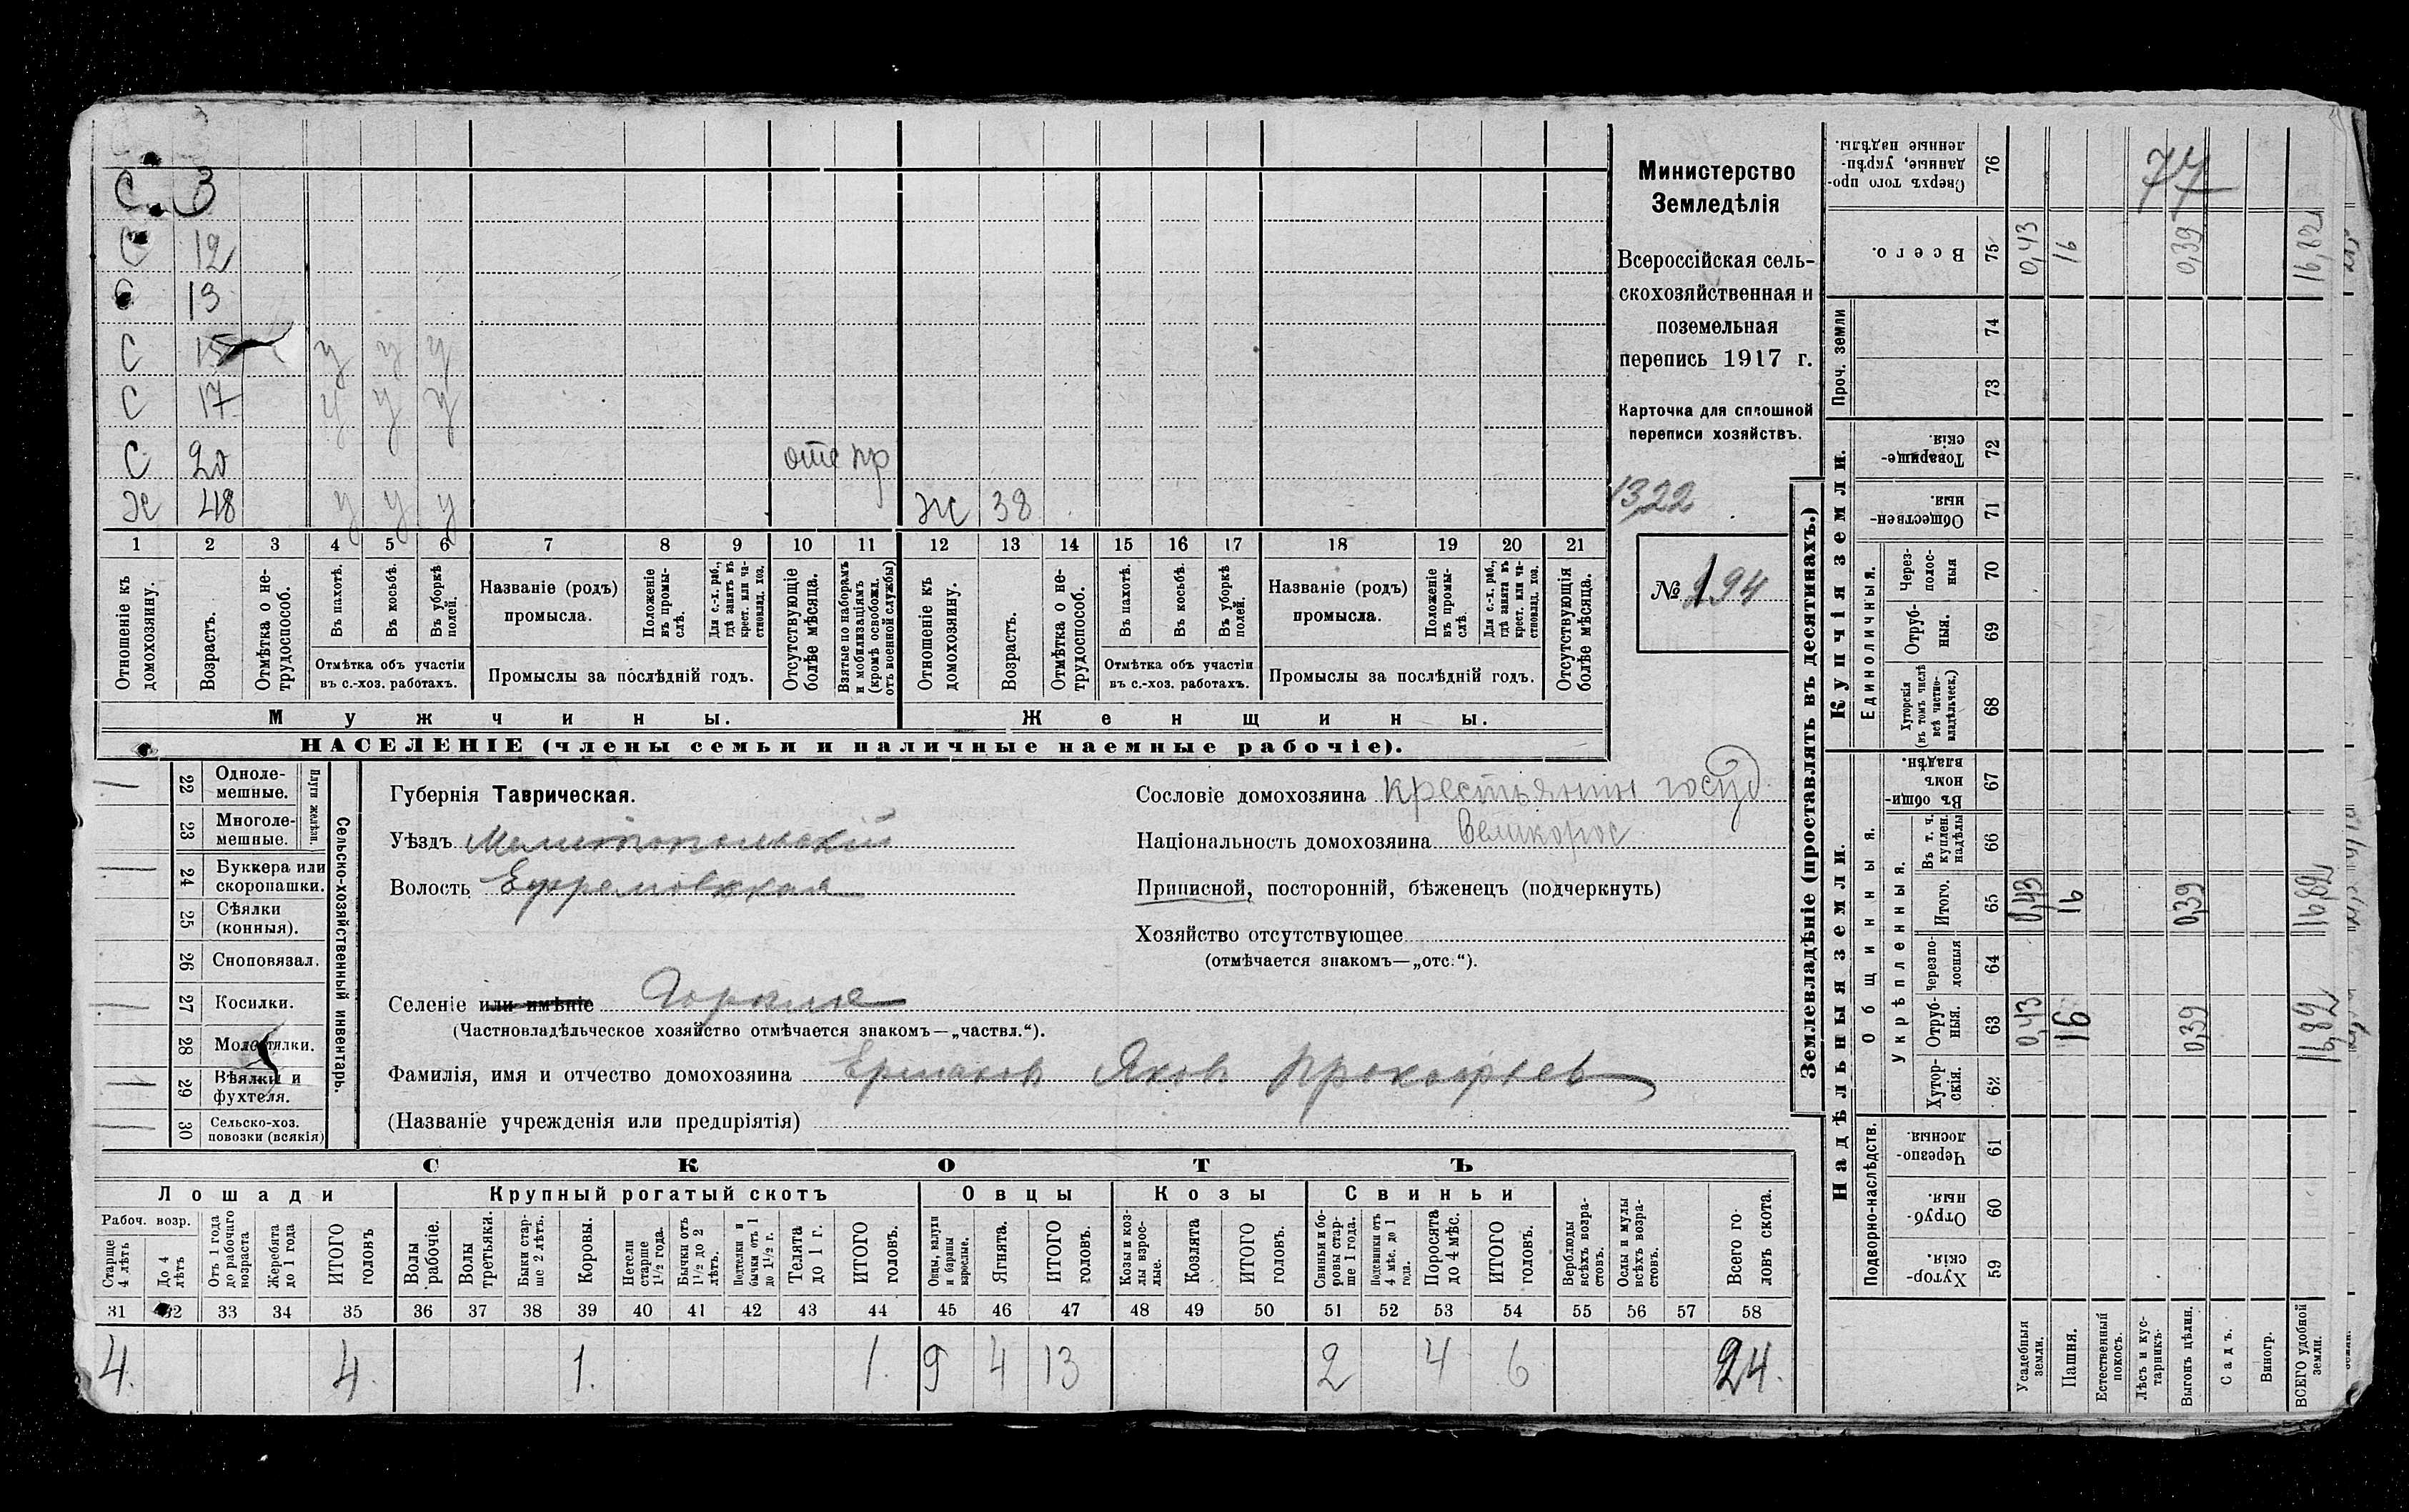 С 3
С 12
С 13
С 15 у у у
С 17 у у у
С 20 отс пр
Ж 48 у у у Ж 38
1 2 3 4 5 6 7 8 9 10 11 12 13 14 15 16 17 18 19 20 21
Отношеніе къ домохозяину.
Возрастъ.
Отмѣтка о нетрудоспособ.
Въ пахотѣ.
Въ косьбѣ.
Въ уборкѣ полей.
Отмѣтка объ участіи въ с.-хоз. работахъ.
Названіе (родъ) промысла.
Положеніе въ промыслѣ.
Для с.-х. раб., гдѣ занятъ въ крест. или частновлад. хоз.
Промыслы за послѣдній годъ.
Отсутствующіе болѣе мѣсяца.
Взятые по наборамъ и мобилизаціямъ (кромѣ освобожд. отъ военной службы)
Отношеніе къ домохозяину.
Возрастъ.
Отмѣтка о нетрудоспособ.
Въ пахотѣ.
Въ косьбѣ.
Въ уборкѣ полей.
Отмѣтка объ участіи въ с.-хоз. работахъ.
Названіе (родъ) промысла.
Положеніе въ промыслѣ.
Для с.-х. раб., гдѣ занята въ крест. или частновлад. хоз.
Промыслы за послѣдній годъ.
Отсутствующія болѣе мѣсяца.
Мужчины.
Женщины.
НАСЕЛЕНІЕ (члены семьи и наличные наемные рабочіе).
Министерство
Земледѣлія
Всероссійская сель-
скохозяйственная и
поземельная
перепись 1917 г.
Карточка для сплошной
переписи хозяйствъ.
1322
№ 194
22 Однолемешные.
23 Многолемешные.
Плуги желѣзн.
24 Буккера или скоропашки.
25 Сѣялки (конныя).
26 Сноповязал.
27 Косилки.
28 Молотилки.
29 Вѣялки и фухтеля.
30 Сельско-хоз. повозки (всякія)
Сельско-хозяйственный инвентарь.
Губернія Таврическая.
Уѣздъ Мелитопольскій
Волость Ефремовская
Селеніе или имѣніе Горѣлое
(Частновладѣльческое хозяйство отмѣчается знакомъ—„частвл.“).
Фамилія, имя и отчество домохозяина Ермаков Яков Прокофьев
(Названіе учрежденія или предпріятія)
Сословіе домохозяина крестьянин госуд
Національность домохозяина Великорос
Приписной, посторонній, бѣженецъ (подчеркнуть)
Хозяйство отсутствующее
(отмѣчается знакомъ—„отс.“).
СКОТЪ
Лошади Крупный рогатый скотъ Овцы Козы Свиньи
Рабоч. возр.
Старше 4 лѣтъ
До 4 лѣтъ
Отъ 1 года до рабочаго возраста
Жеребята до 1 года
ИТОГО головъ
Волы рабочіе.
Волы третьяки.
Быки старше 2 лѣтъ.
Коровы.
Нетели старше 1½ года.
Бычки отъ 1½ до 2 лѣтъ.
Подтелки и бычки отъ 1 до 1½ г.
Телята до 1 г.
ИТОГО головъ.
Овцы, валухи и бараны взрослые.
Ягнята.
ИТОГО головъ.
Козы и козлы взрослые.
Козлята
ИТОГО головъ.
Свиньи и боровы старше 1 года.
Подсвинки отъ 4 мѣс. до 1 года.
Поросята до 4 мѣс.
ИТОГО головъ.
Верблюды всѣхъ возрастовъ.
Ослы и мулы всѣхъ возрастовъ.
Всего головъ скота.
31 32 33 34 35 36 37 38 39 40 41 42 43 44 45 46 47 48 49 50 51 52 53 54 55 56 57 58
4. 4. 1. 1. 9 4 13 2 4 6 24.
Землевладѣніе (проставлять въ десятинахъ.)
77
Сверхъ того проданные, укрѣпленные надѣлы. 76
Всего. 75 0,43 16 0,39 16,82
Проч. земли
74
73
Купчія земли.
Товарищескія. 72
Общественныя. 71
Единоличныя.
Черезполосныя 70
Отрубныя. 69
Хуторскія (въ томъ числѣ всѣ частновладѣльческ.) 68
Надѣльныя земли.
Общинныя.
Въ общинномъ владѣн. 67
Укрѣпленныя.
Въ т. ч. куплен. надѣлы 66
Итого. 65 0,43 16 0,39 16,82
черезполосныя 64
Отрубныя. 63 0,43 16 0,39 16,82
Хуторскія. 62
Подворно-наслѣдств.
Черезполосныя 61
Отрубныя. 60
Хуторскія. 59
Усадебныя земли.
Пашня.
Естественный покосъ.
Лѣсъ и кустарникъ.
Выгонъ цѣлин.
Садъ.
Виногр.
ВСЕГО удобной земли.